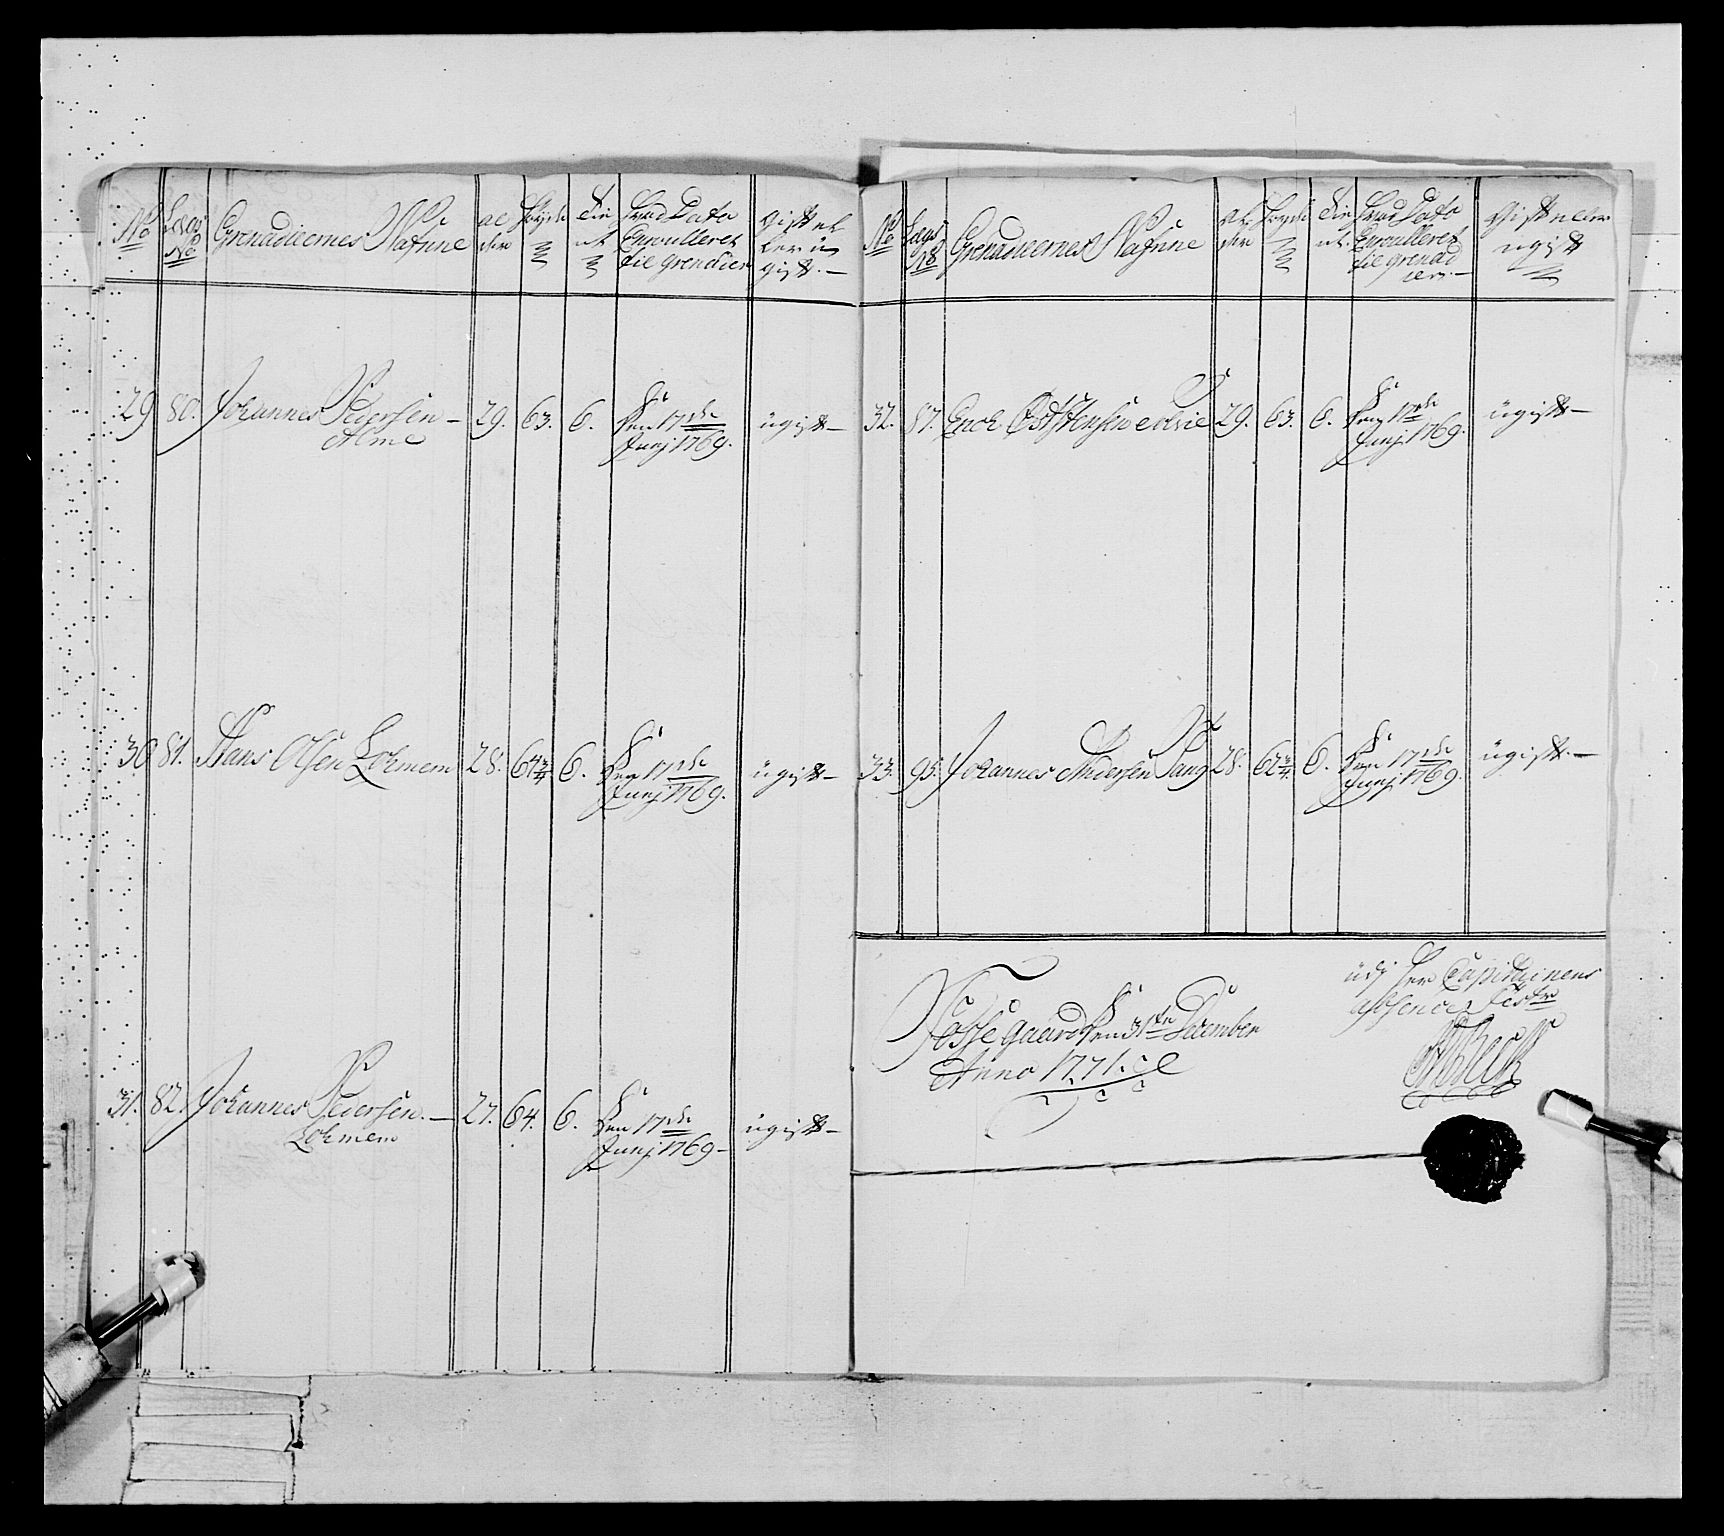 No
Lægs No
Grenadeernes Nafne
al der
Høyde
Tie nt
hvad Dato
Enroulleret
til grenadier
gift el
ler u
gift. —
29
80.
Johannes Pedersen —
Alme
29.
63.
6.
Den 17de
Junj 1769.
ügift —
30
81.
Hans Olsen Lohmem
28.
64 3/4
6.
Den 17de
Junj 1769.
ügift —
31.
82.
Johannes Pedersen. —
Lohmem
27.
64.
6.
Den 17de
Junj 1769 —
ügift —
No
Lægs
Grenadeernes Nafne
al der
Høyde
Tie nt.
hvad Dato
Enroulleret
til grenad
ier. —
gift eler
ugift
32.
87.
Enoch
29.
63.
6.
Den 17de
Junj 1769.
ügift —
33.
95.
Johannes Andersen Pang
28.
62 3/4
6.
Den 17de
Junj 1769.
ügift. —
Fosse gaard Den 31te December
Anno 1771.
üdj Herr Capitainens
absence